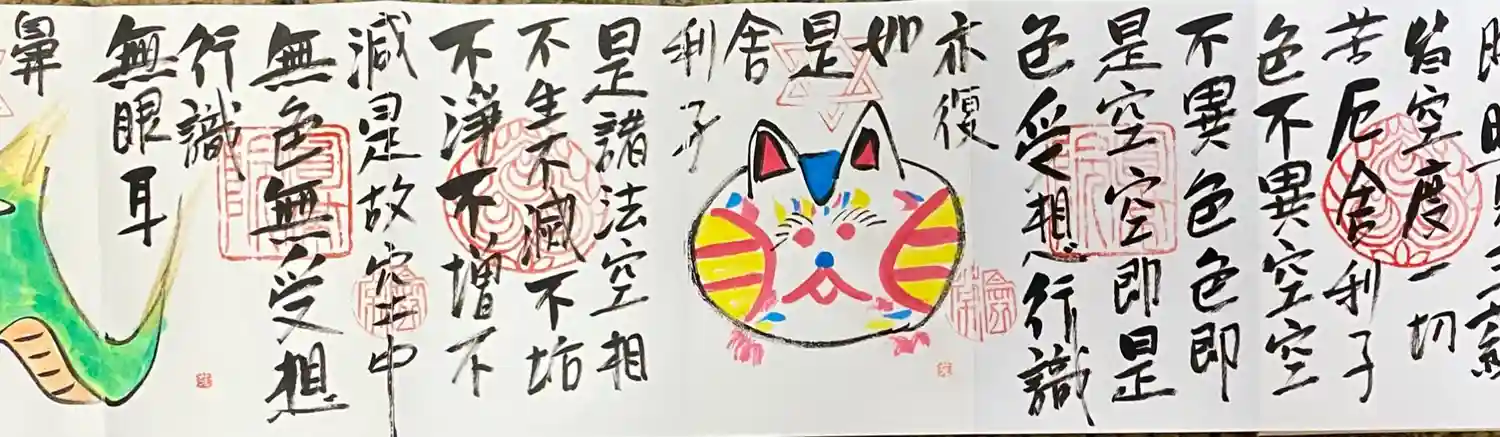 時照見五蘊
皆空度一切
苦厄舍利子
色不異空空
不異色色即
是空空即是
色受想行識
亦復
如
是
舍
利子
是諸法空相
不生不滅不垢
不淨不增不
減是故空中
無色無受想
行識
無眼耳
鼻